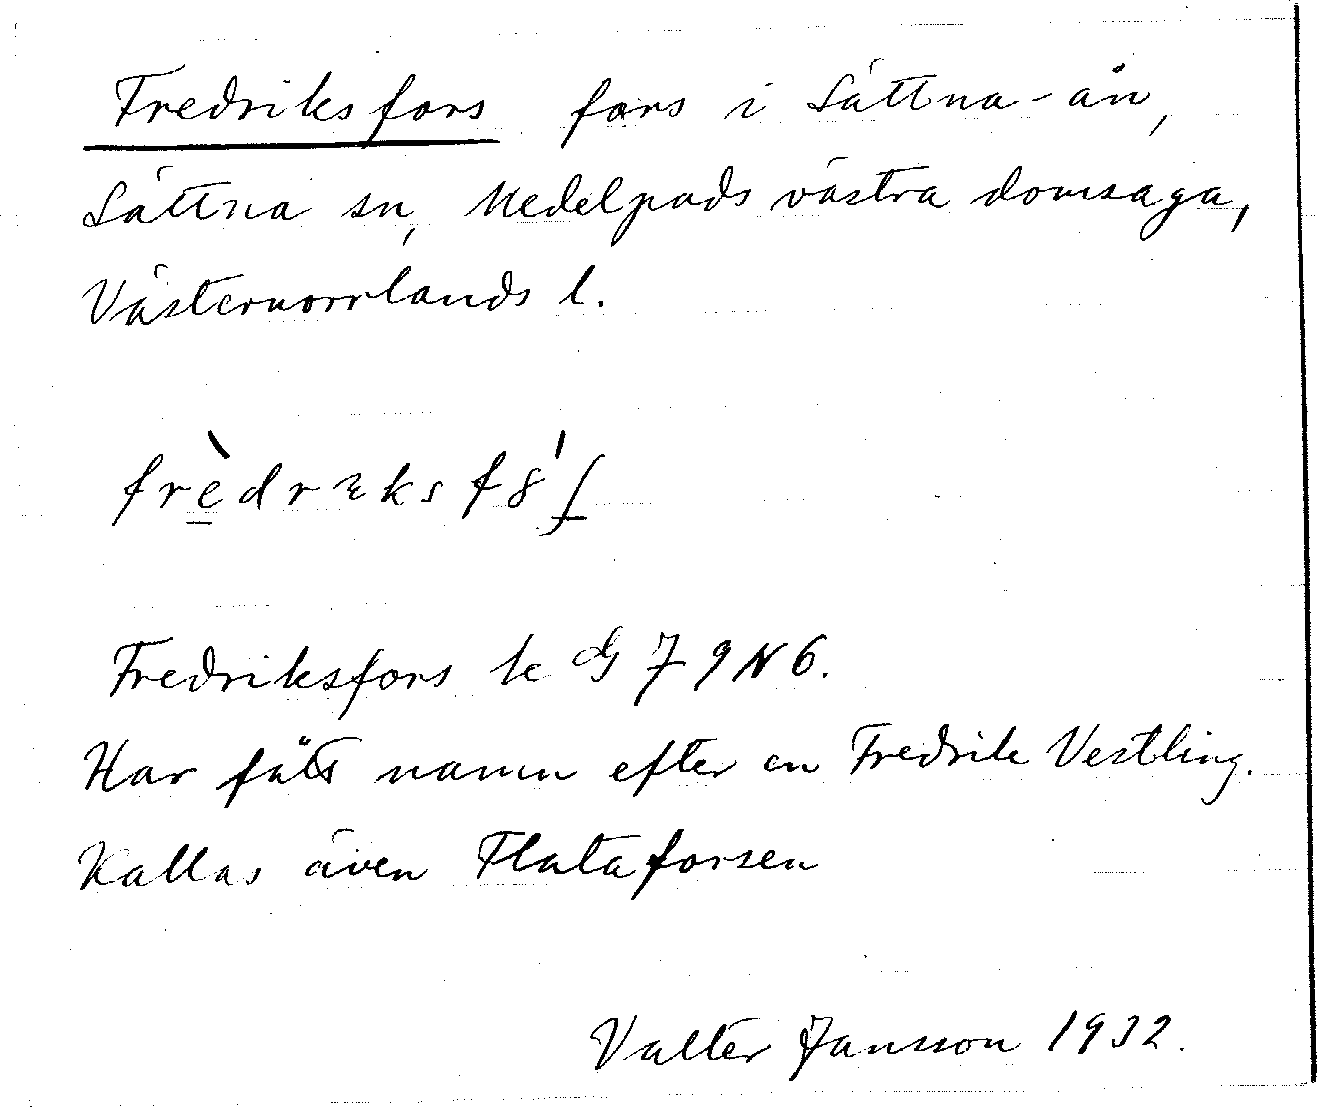 Fredriksfors fors i Sättna-ån,
Sättna sn, Medelpads västra domsaga,
Västernorrlands l.
Fredriksfors k G 7 9 N 6.
Har fått namn efter en Fredrik Vestling.
Kallas även Flataforsen
Valter Jansson 1932.